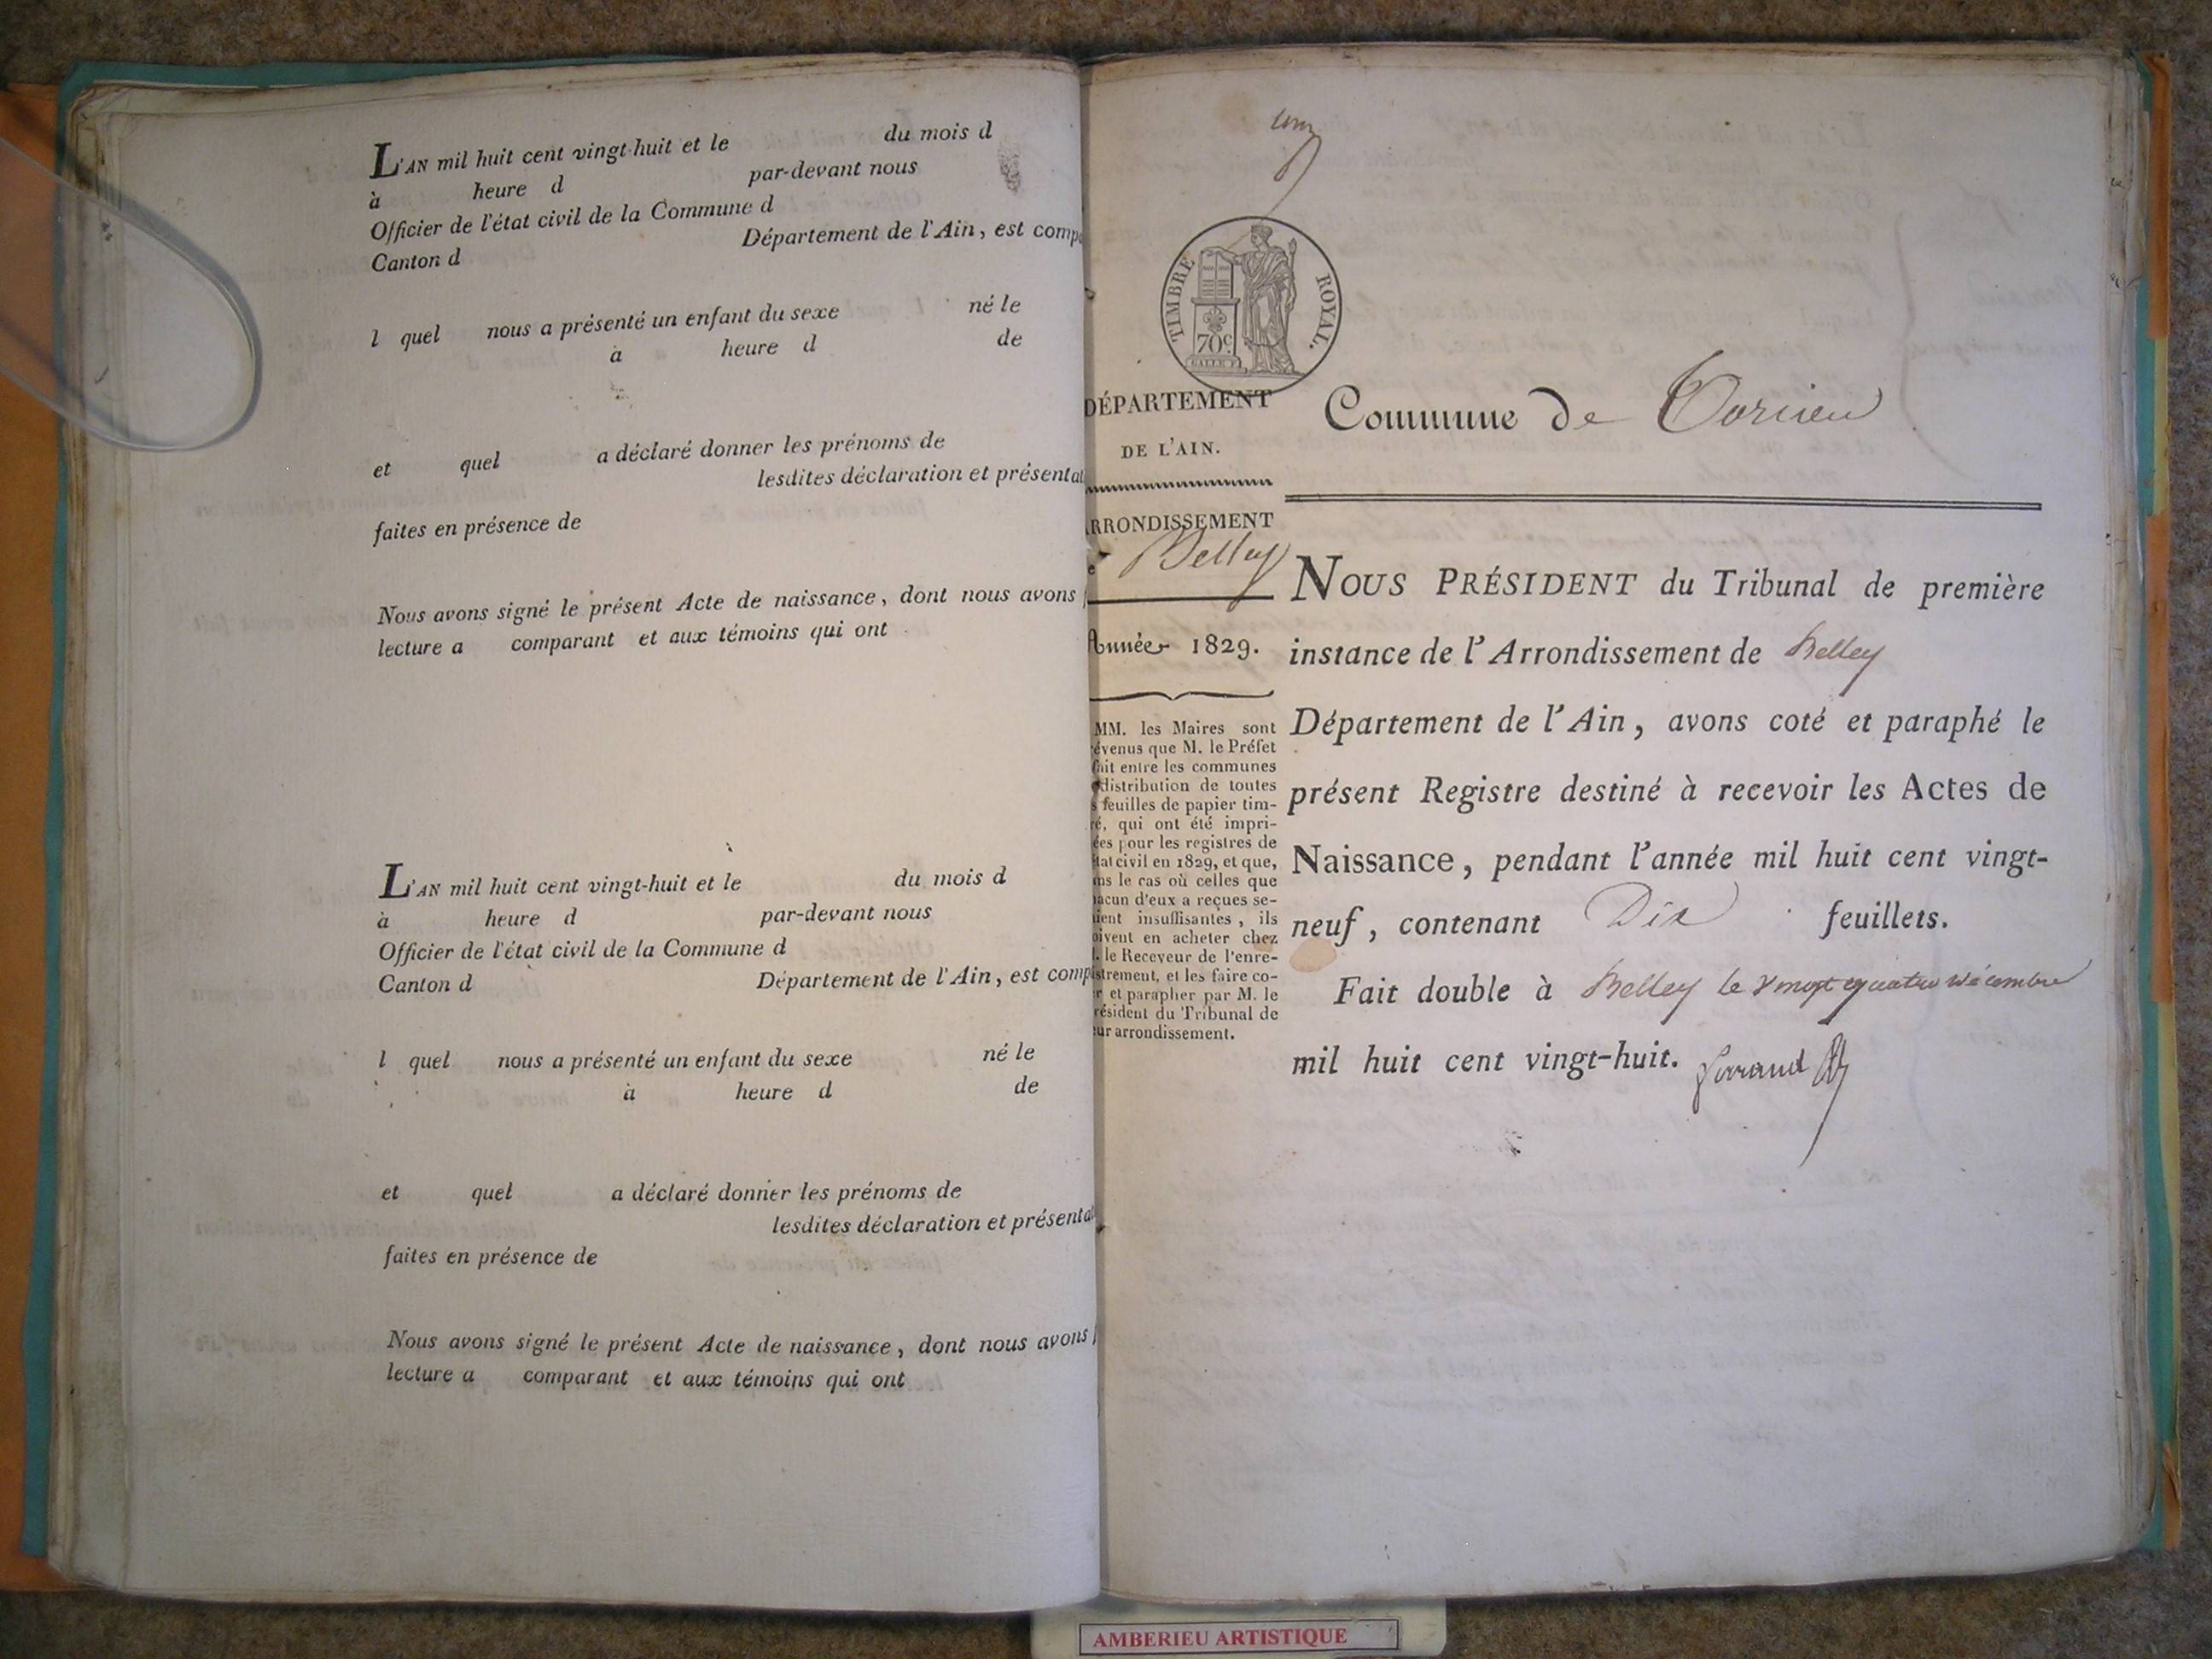 L'AN mil huit cent vingt-huit et le du mois d
à heure d par-devant nous
Officier de l'état civil de la Commune d
Canton d Département de l'Ain, est comp
l quel nous a présenté un enfant du sexe né le
à heure d de
et quel a déclaré donner les prénoms de
lesdites déclaration et présentat
faites en présence de
Nous avons signé le présent Acte de naissance, dont nous avons
lecture a comparant et aux témoins qui ont
L'AN mil huit cent vingt-huit et le du mois d
à heure d par-devant nous
Officier de l'état civil de la Commune d
Canton d Département de l'Ain, est comp
l quel nous a présenté un enfant du sexe né le
à heure d de
et quel a déclaré donner les prénoms de
lesdites déclaration et présentat
faites en présence de
Nous avons signé le présent Acte de naissance, dont nous avons
lecture a comparant et aux témoins qui ont
TIMBRE ROYAL.
70c
DÉPARTEMENT
DE L'AIN.
ARRONDISSEMENT
e Belley
Année 1829.
MM. les Maires sont
évenus que M. le Préfet
fait entre les communes
distribution de toutes
s feuilles de papier tim-
ré, qui ont été impri-
ées pour les registres de
état civil en 1829, et que,
ns le cas où celles que
hacun d'eux a reçues se-
ient insuffisantes, ils
oivent en acheter chez
l. le Receveur de l'enre-
istrement, et les faire co-
r et parapher par M. le
résident du Tribunal de
eur arrondissement.
Commune de Torcieu
NOUS PRÉSIDENT du Tribunal de première
instance de l'Arrondissement de Belley
Département de l'Ain, avons coté et paraphé le
présent Registre destiné à recevoir les Actes de
Naissance, pendant l'année mil huit cent vingt-
neuf, contenant Dix feuillets.
Fait double à Belley le vingt quatre décembre
mil huit cent vingt-huit.
AMBERIEU ARTISTIQUE